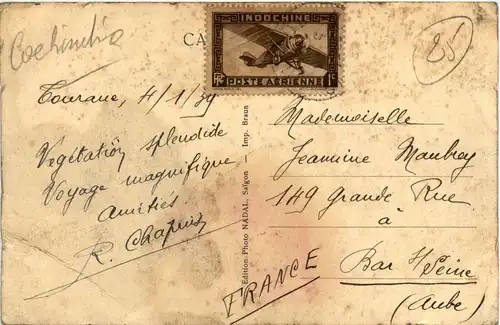 Cochinchine
CA
INDOCHINE
RF
POSTE AERIENNE
1c
25
Tourane, 4/1/39
Végétation splendide
Voyage magnifique
Amitiés
R. Chapuis
Edition Photo NADAL, Saïgon - Imp. Braun
Mademoiselle
Jeannine Maubrey
149 Grande Rue
à
Bar s/ Seine
(Aube)
FRANCE